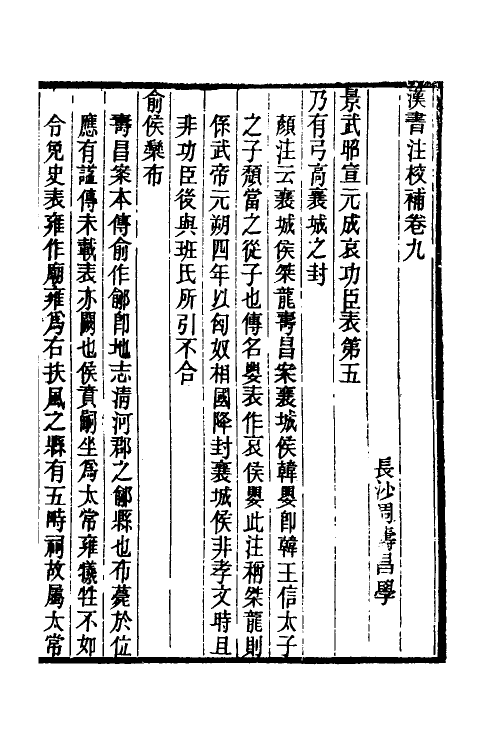 漢書注校補卷九
長沙周壽昌學
景武昭宣元成哀功臣表第五
乃有弓高襄城之封
顏注云襄城侯桀龍壽昌案襄城侯韓嬰卽韓王信太子
之子頹當之從子也傳名嬰表作哀侯嬰此注稱桀龍則
係武帝元朔四年以匈奴相國降封襄城侯非孝文時且
非功臣後與班氏所引不合
俞侯欒布
壽昌案本傳俞作鄃卽地志淸河郡之鄃縣也布薨於位
應有諡傳未載表亦闕也侯賁嗣坐爲太常雍犧牲不如
令免史表雍作廟雍爲右扶風之縣有五畤祠故屬太常